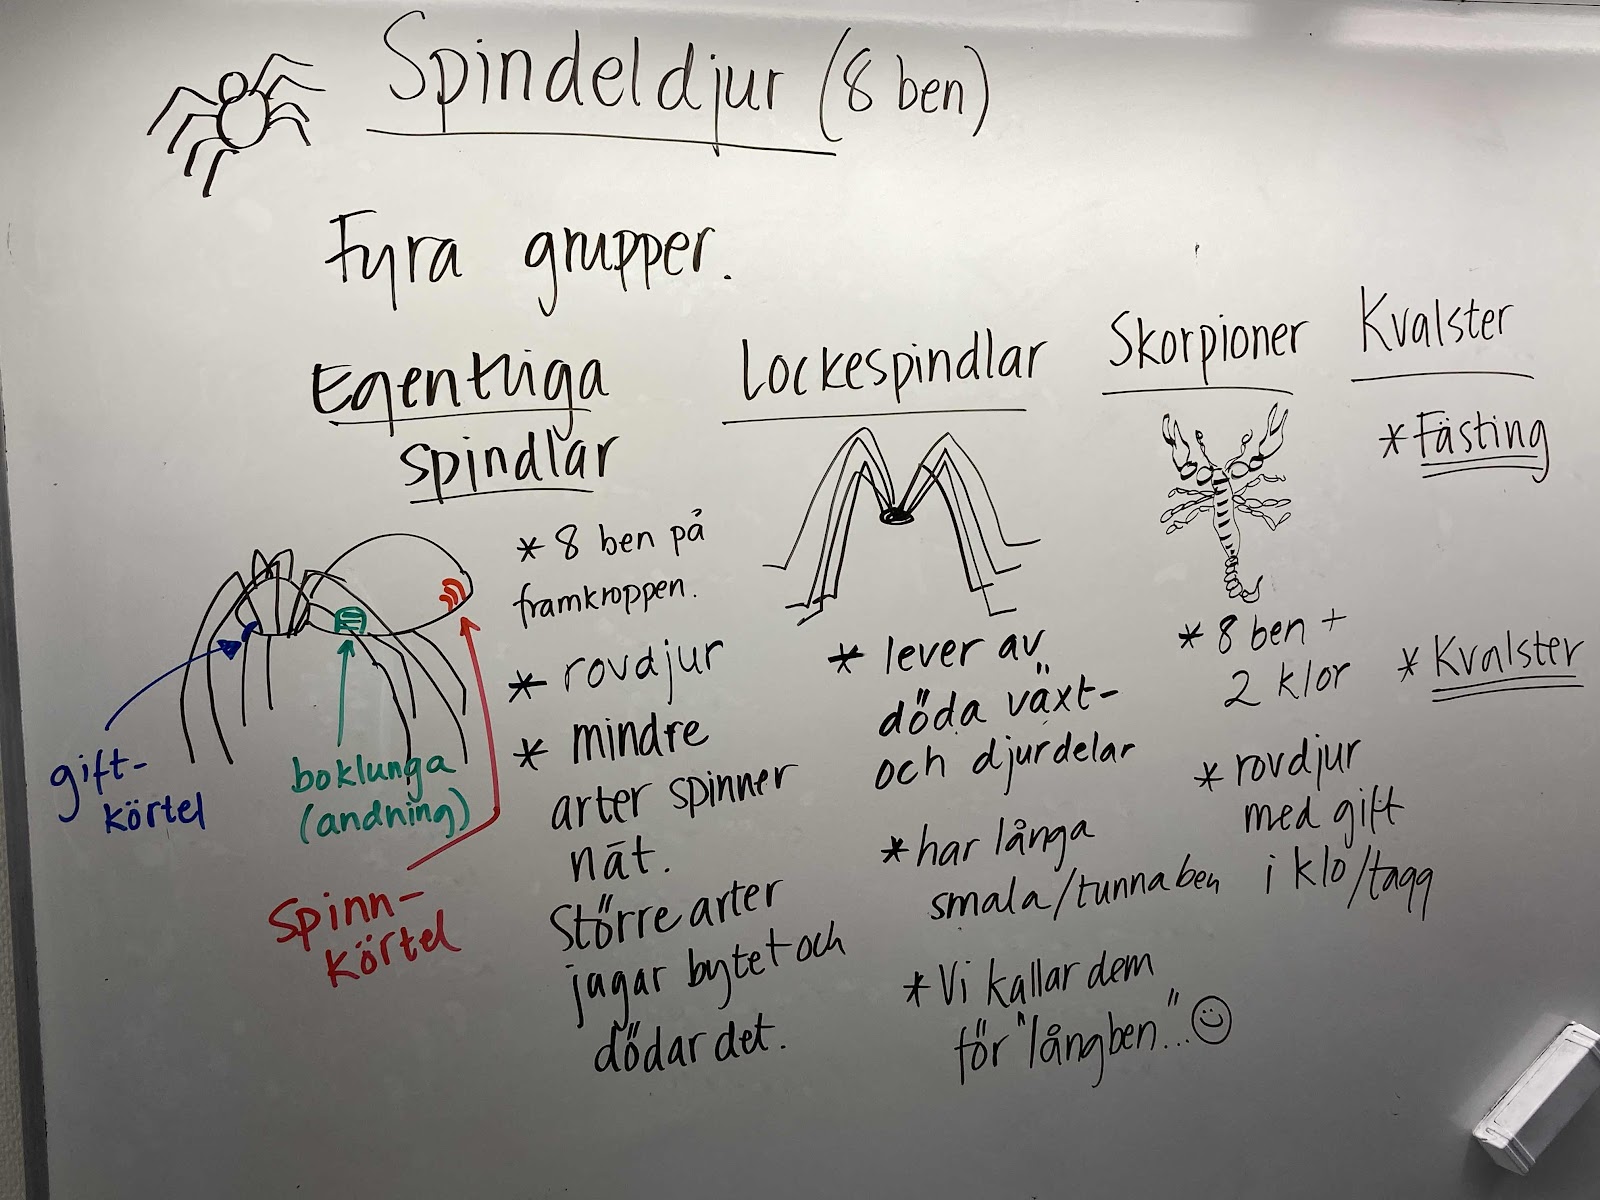 Spindeldjur (8 ben)
Fyra grupper.
Egentliga
spindlar
* 8 ben på
framkroppen.
* rovdjur
* mindre
arter spinner
nät.
Större arter
jagar bytet och
dödar det.
gift-
körtel
boklunga
(andning)
Spinn-
körtel
Lockespindlar
* lever av
döda växt-
och djurdelar
* har långa
smala/tunna ben
* Vi kallar dem
för "långben"...
Skorpioner
* 8 ben +
2 klor
* rovdjur
med gift
i klo/tagg
Kvalster
* Fästing
* Kvalster